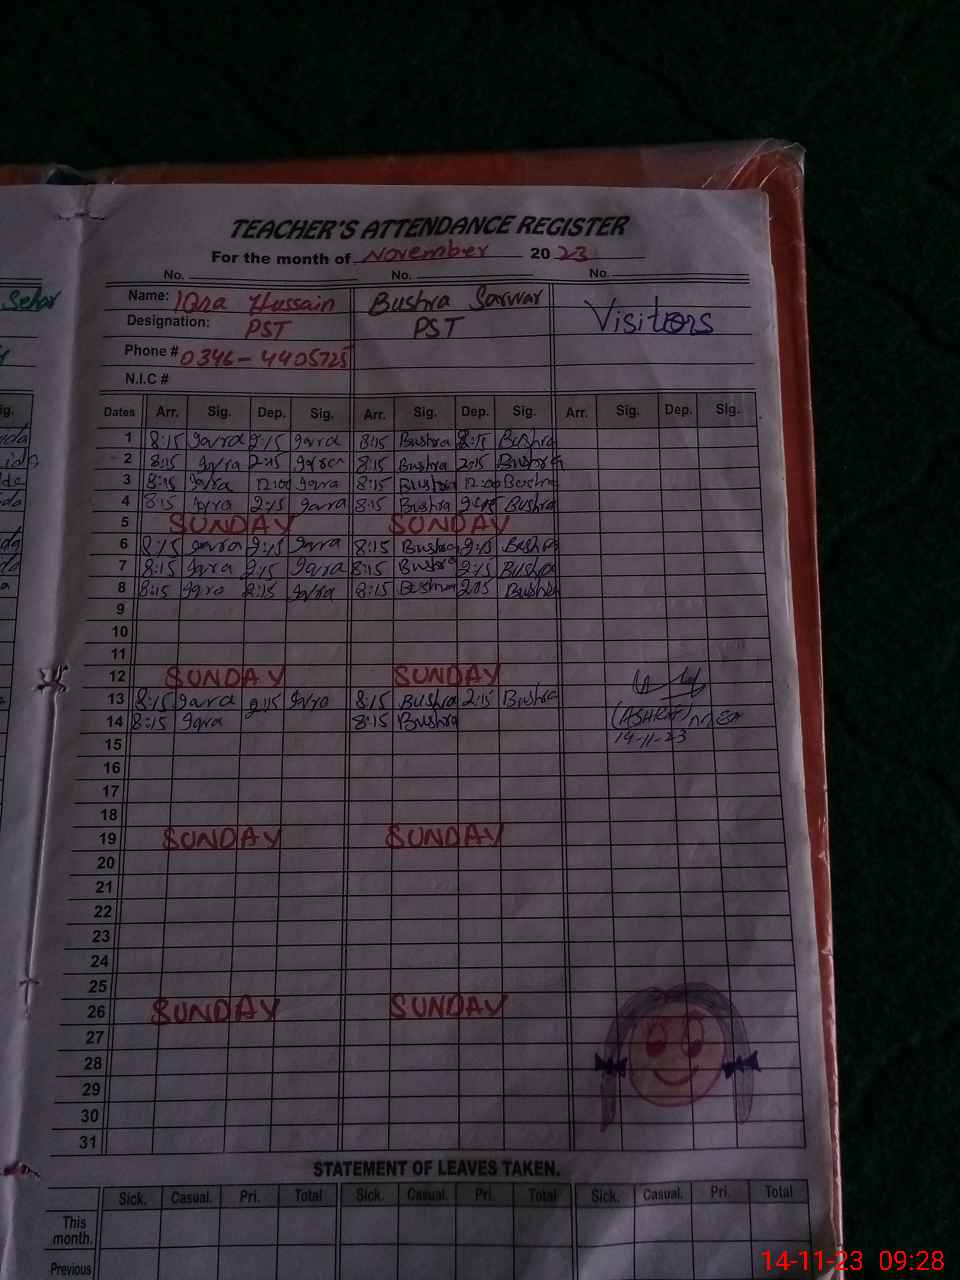 TEACHER'S ATTENDANCE REGISTER
For the month of November 2023
No. No. No.
Sehar
Name: Iqra Hussain Bushra Sarwar Visitiors
Designation: PST PST
Phone # 0346-4405725
N.I.C #
Dates Arr. Sig. Dep. Sig. Arr. Sig. Dep. Sig. Arr. Sig. Dep. Sig.
1 8:15 Iqra 2:15 Iqra 8:15 Bushra 2:15 Bushra
2 8:15 Iqra 2:15 Iqra 8:15 Bushra 2:15 Bushra
3 8:15 Iqra 12:00 Iqra 8:15 Bushra 12:00 Bushra
4 8:15 Iqra 2:15 Iqra 8:15 Bushra 2:15 Bushra
5 SUNDAY SUNDAY
6 8:15 Iqra 2:15 Iqra 8:15 Bushra 2:15 Bushra
7 8:15 Iqra 2:15 Iqra 8:15 Bushra 2:15 Bushra
8 8:15 Iqra 2:15 Iqra 8:15 Bushra Bushra
9
10
11
12 SUNDAY SUNDAY
13 8:15 Iqra 2:15 Iqra 8:15 Bushra 2:15 Bushra
14 8:15 Iqra 8:15 Bushra
14-11-23
15
16
17
18
19 SUNDAY SUNDAY
20
21
22
23
24
25
26 SUNDAY SUNDAY
27
28
29
30
31
STATEMENT OF LEAVES TAKEN.
Sick. Casual. Pri. Total Sick. Casual. Pri. Total Sick. Casual. Pri. Total
This
month.
Previous
14-11-23 09:28